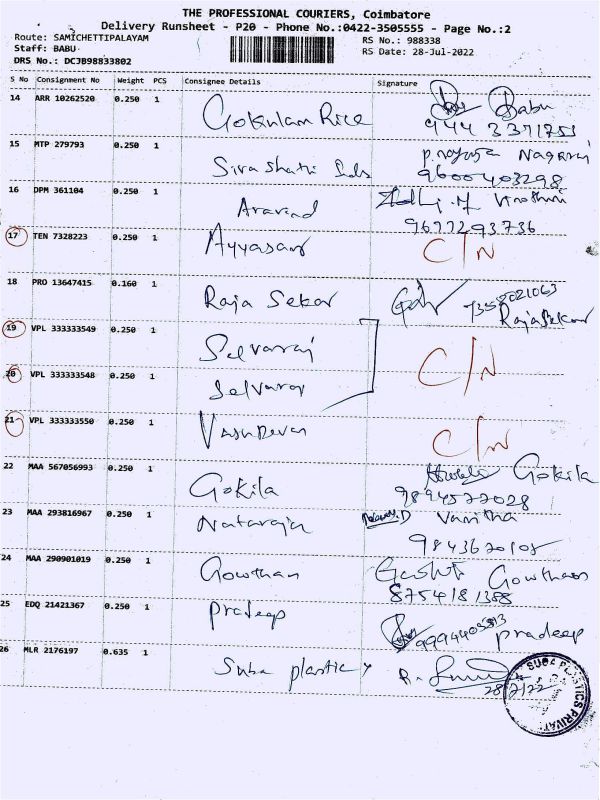 THE PROFESSIONAL COURIERS, Coimbatore
Delivery Runsheet - P20 - Phone No.:0422-3505555 - Page No.:2
Route: SAMICHETTIPALAYAM RS No.: 988338
Staff: BABU RS Date: 28-Jul-2022
DRS No.: DCJB98833802
S No Consignment No Weight PCS Consignee Details Signature
14 ARR 10262520 0.250 1 Gokulam Rice Babu
15 MTP 279793 0.250 1 Siva Shakti Nagaraj
9600403298
16 DPM 361104 0.250 1 Aravind
9677293736
17 TEN 7328223 0.250 1 Ayyasamy C/N
18 PRO 13647415 0.160 1 Raja Sekar 7358021063
RajaSekar
19 VPL 333333549 0.250 1 Selvaraj C/N
20 VPL 333333548 0.250 1 Selvaraj
21 VPL 333333550 0.250 1 Vasudevan C/N
22 MAA 567056993 0.250 1 Gokila Gokila
9894577028
23 MAA 293816967 0.250 1 Nataraja Vanitha
24 MAA 290901019 0.250 1 Gowtham Gowtham
8754181388
25 EDQ 21421367 0.250 1 Pradeep pradeep
26 MLR 2176197 0.635 1 Suba plastics
28/7/22
SUBA PLASTICS PRIVAT